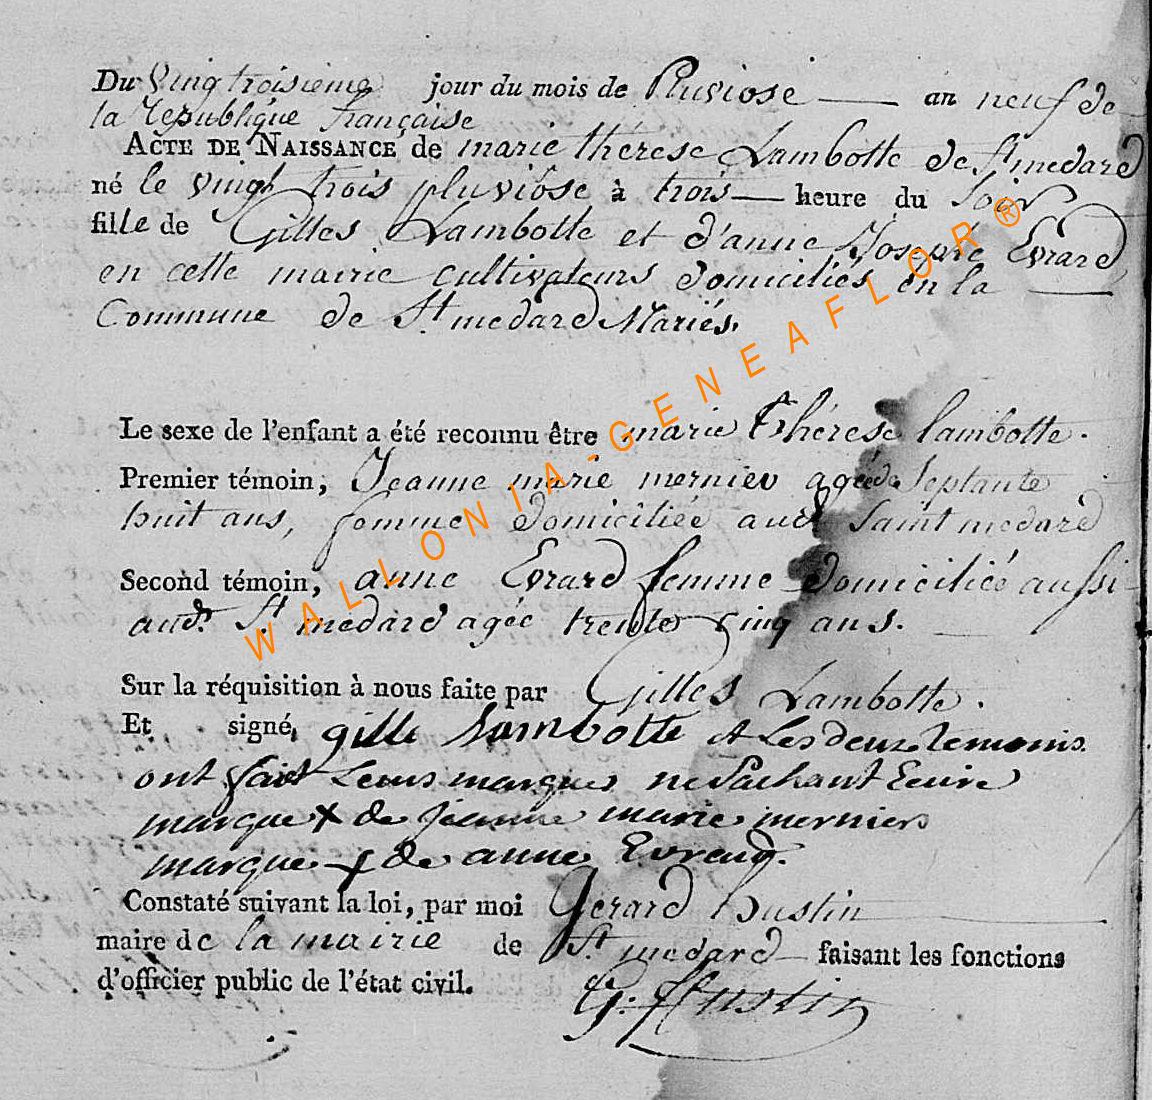 Du Vingtroisieme jour du mois de Pluviose — an neuf de
la Republique française
ACTE DE NAISSANCE de marie thérese Lambotte de St medard
né le vingt trois pluviôse à trois — heure du Soir
fille de Gilles Lambotte et d'anne Josephe Evrard
en cette mairie cultivateurs domiciliés en la —
Commune de St medard Mariés.
Le sexe de l'enfant a été reconnu être marie thérese lambotte.
Premier témoin, Jeanne marie mernier agée de Septante
huit ans, femme domiciliée aud Saint medard
Second témoin, anne Evrard femme domiciliée aussi
aud. St medard agée trente cinq ans.
Sur la réquisition à nous faite par Gilles Lambotte.
Et signé, gille Lambotte et Les deux temoins
ont fait Leurs marques ne Sachant Ecrire
marque + de jeanne marie merniers
marque + de anne Evrard.
Constaté suivant la loi, par moi Gerard hustin —
maire de la mairie de St medard — faisant les fonctions
d'officier public de l'état civil.
G. Hustin
WALLONIA-GENEAFLOR®